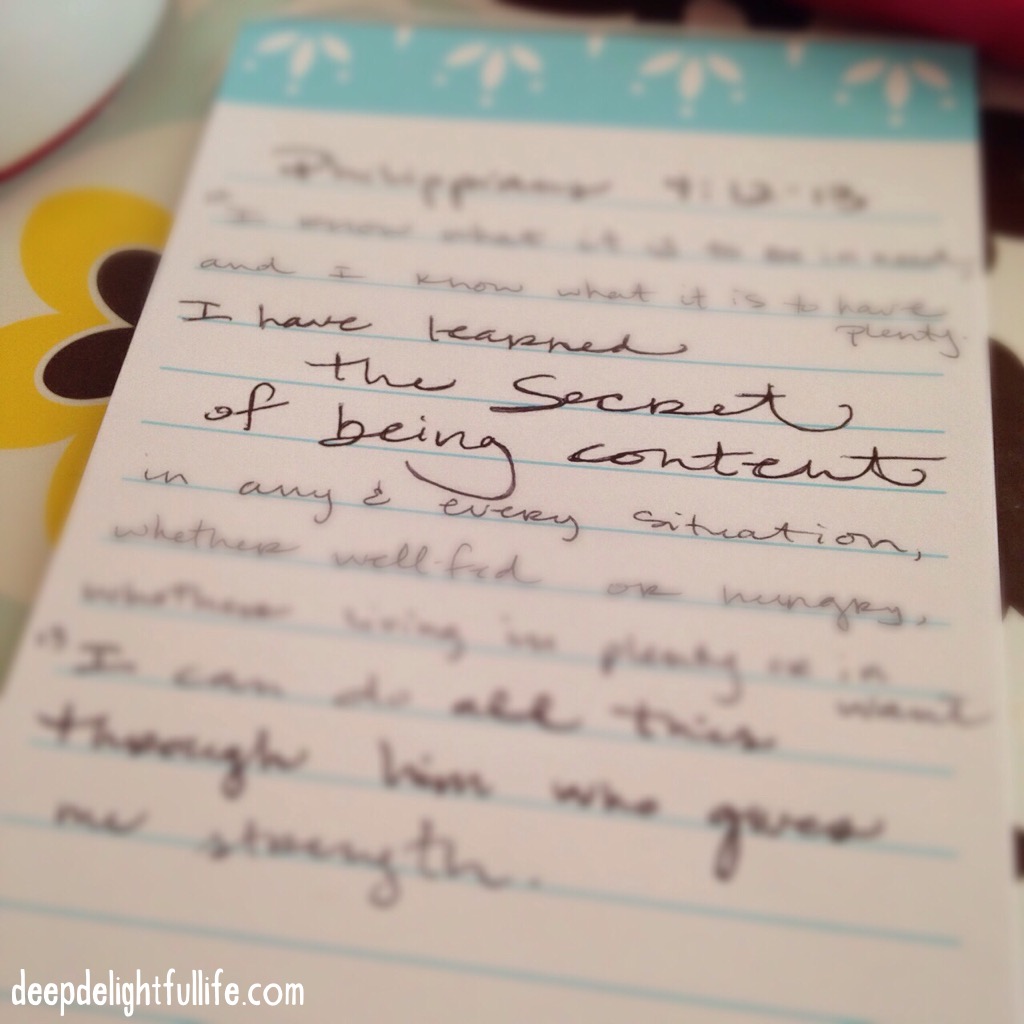 Philippians 4:12-13
"I know what it is to be in need,
and I know what it is to have
plenty.
I have learned
the secret
of being content
in any & every situation,
whether well-fed or hungry,
whether living in plenty or in
want
13 I can do all this
through him who gives
me strength.
deepdelightfullife.com